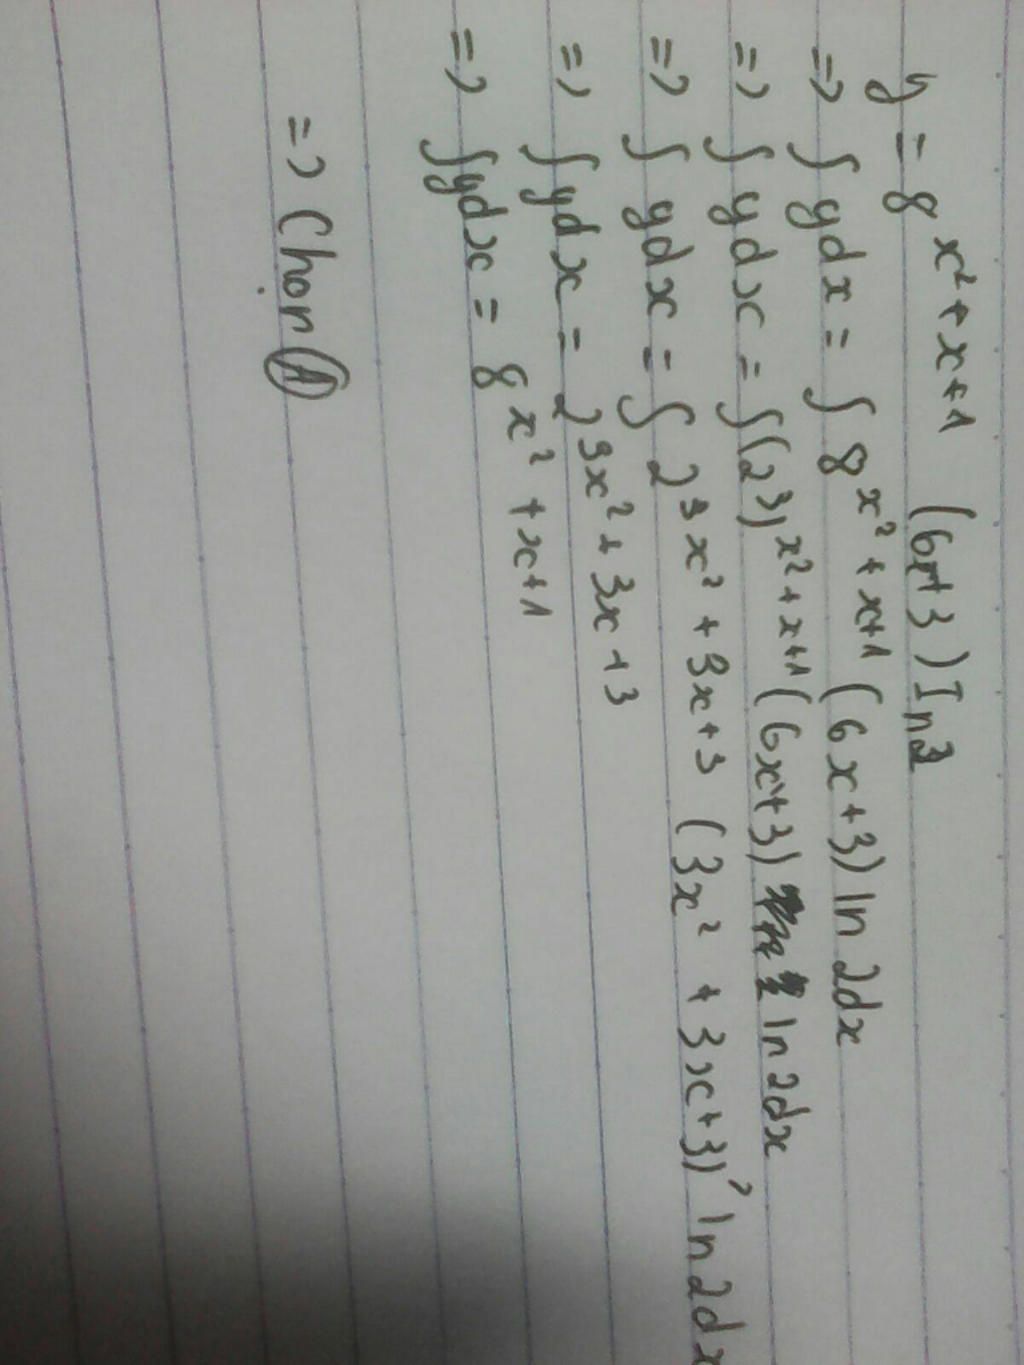 y = 8^{x² + x + 1} (6x + 3) ln2
=> ∫ydx = ∫8^{x² + x + 1} (6x + 3) ln 2dx
=> ∫ydx = ∫(2³)^{x² + x + 1} (6x + 3) ln 2dx
=> ∫ydx = ∫2^{3x² + 3x + 3} (3x² + 3x + 3)' ln 2dx
=> ∫ydx = 2^{3x² + 3x + 3}
=> ∫ydx = 8^{x² + x + 1}
=> Chọn A